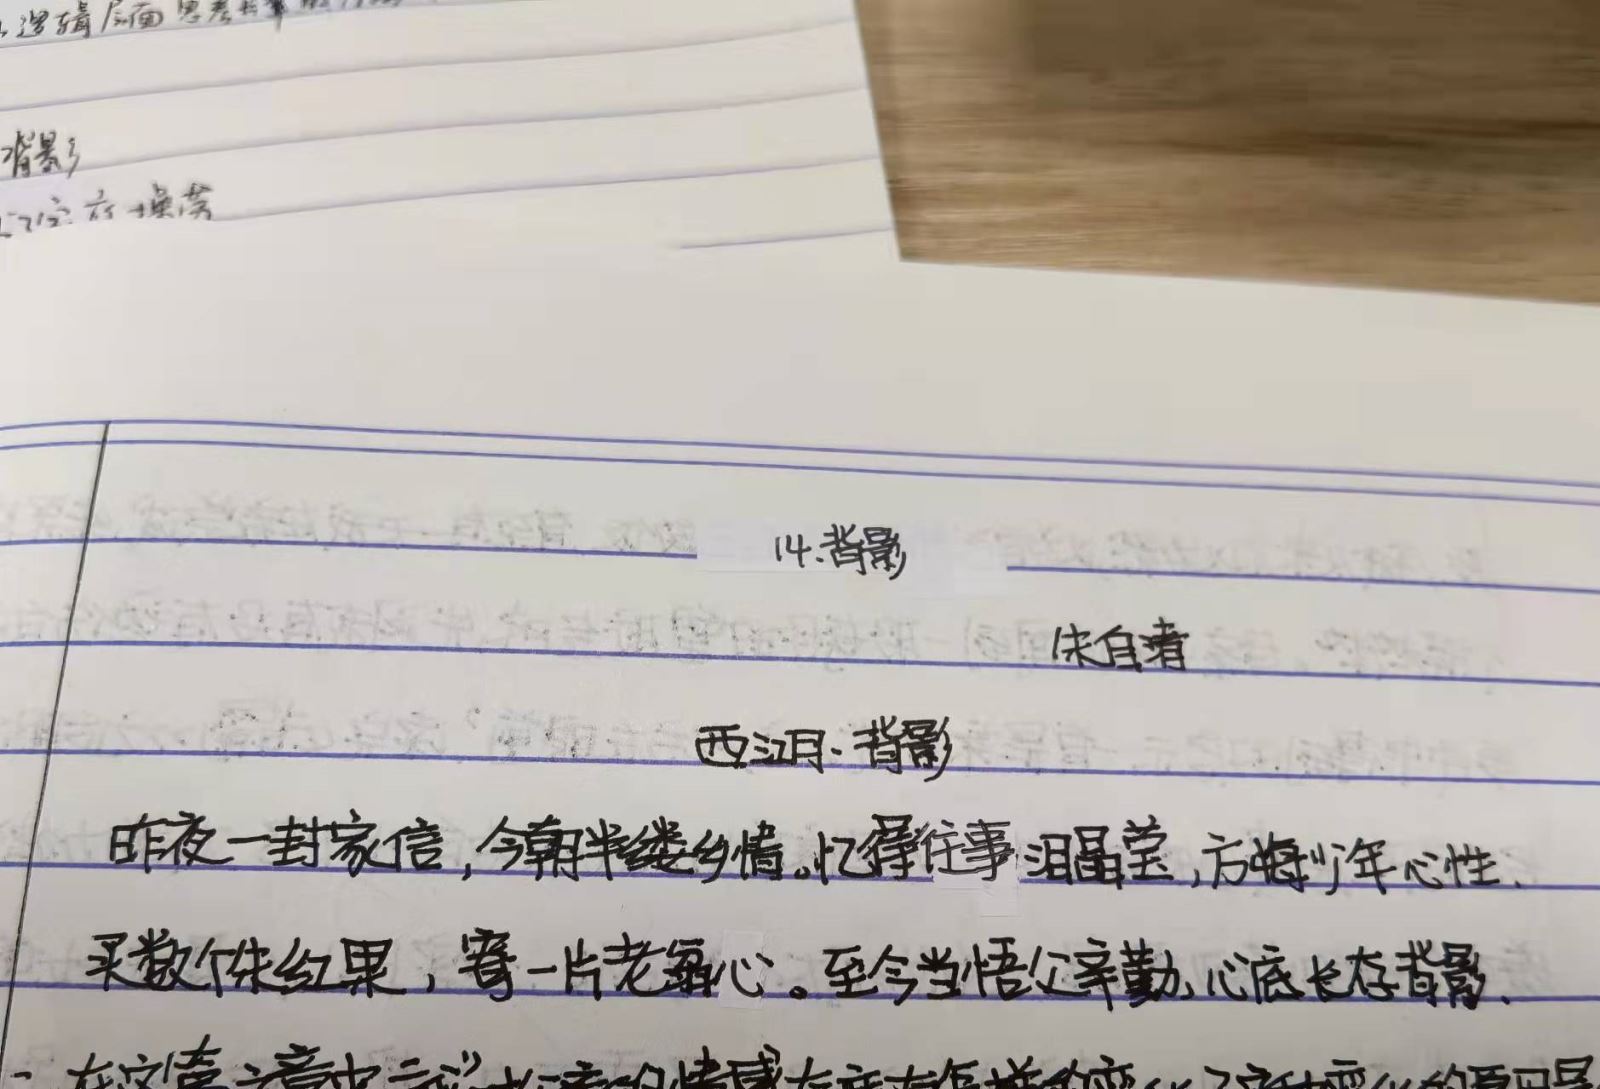 逻辑层面思考
背影
14.背影
朱自清
西江月·背影
昨夜一封家信，今朝半缕乡情。忆得往事泪晶莹，方悔少年心性.
买数个朱红果，寄一片老每心。至今当悟父辛勤，心底长存背影.
在这篇文章中